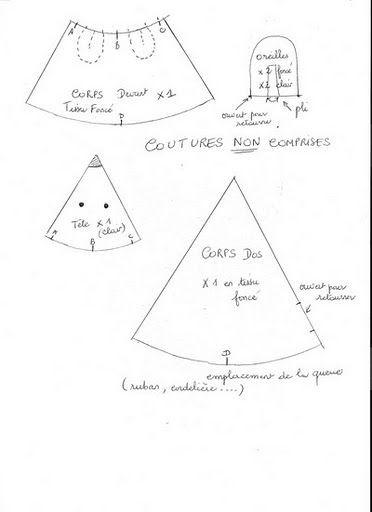 A B C
CORPS Devant x1
Tissu Foncé
D
oreilles
x 2 foncé
x 2 clair
ouvert pour
retourner
pli
COUTURES NON COMPRISES
Tête x 1
(clair)
A B C
CORPS DOS
x 1 en tissu
foncé
ouvert pour
retourner
D
emplacement de la queue
(ruban, cordelière ....)